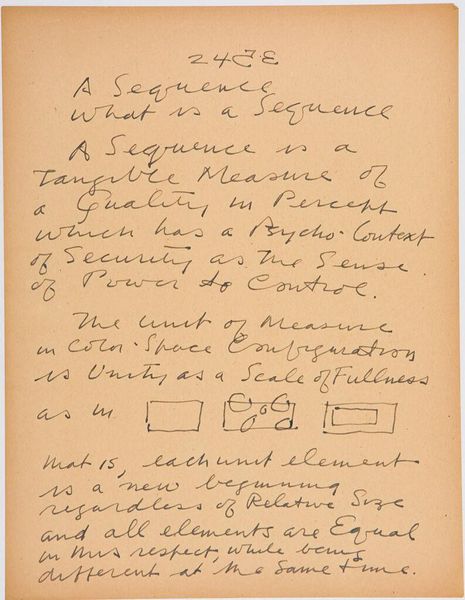 A Sequence
What is a Sequence
A Sequence is a
Tangible Measure of
a Quality in Percept
which has a Psycho-Context
of Security as the Sense
of Power to Control.
The Unit of Measure
in Color-Space Configuration
is Unity as a Scale of Fullness
as in
that is, each unit element
is a new beginning
regardless of Relative Size
and all elements are Equal
in this respect, while being
different at the same time.